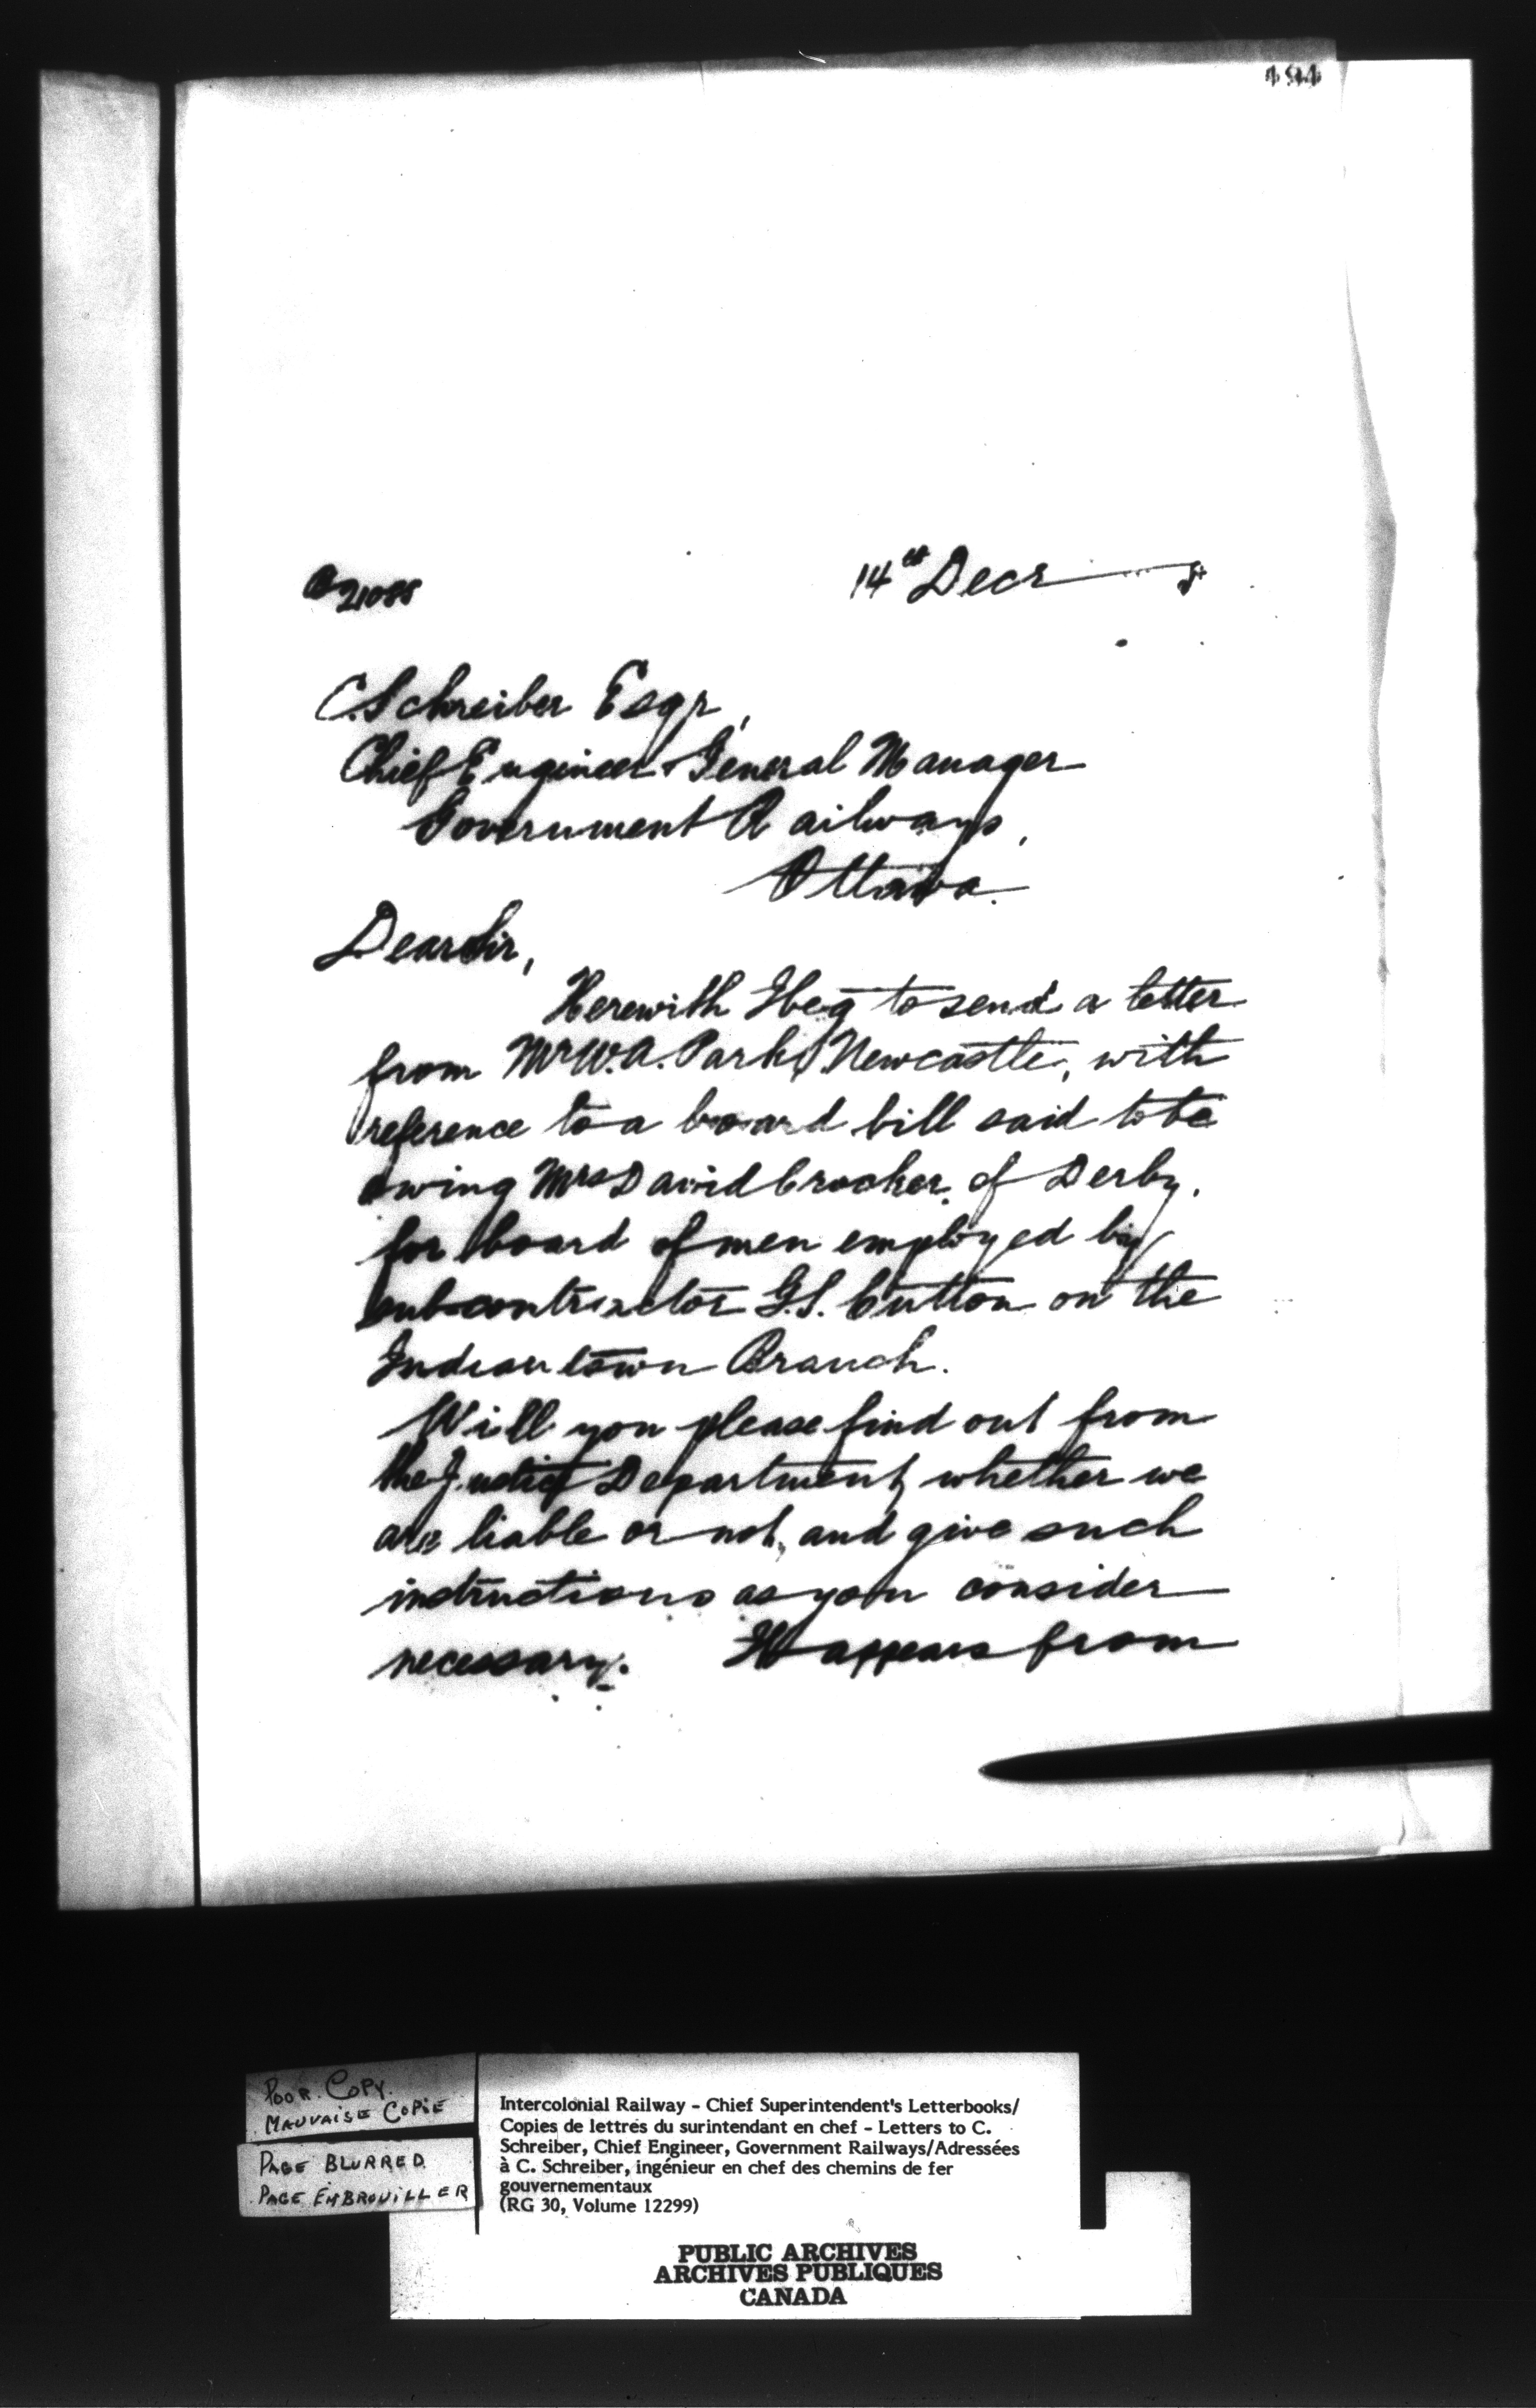 21088
14th Decr
C. Schreiber Esqr,
Chief Engineer & General Manager
Government Railways,
Ottawa.
Dear Sir,
Herewith I beg to send a letter
from Mr W. A. Park, Newcastle, with
reference to a board bill said to be
owing Mrs David Crocker of Derby,
for board of men employed by
sub-contractor G.S. Cutton on the
Indiantown Branch.
Will you please find out from
the Justice Department, whether we
are liable or not, and give such
instructions as you consider
necessary. It appears from
POOR COPY.
MAUVAISE COPIE
PAGE BLURRED
PAGE EMBROUILLER
Intercolonial Railway - Chief Superintendent's Letterbooks/
Copies de lettres du surintendant en chef - Letters to C.
Schreiber, Chief Engineer, Government Railways/Adressées
à C. Schreiber, ingénieur en chef des chemins de fer
gouvernementaux
(RG 30, Volume 12299)
PUBLIC ARCHIVES
ARCHIVES PUBLIQUES
CANADA